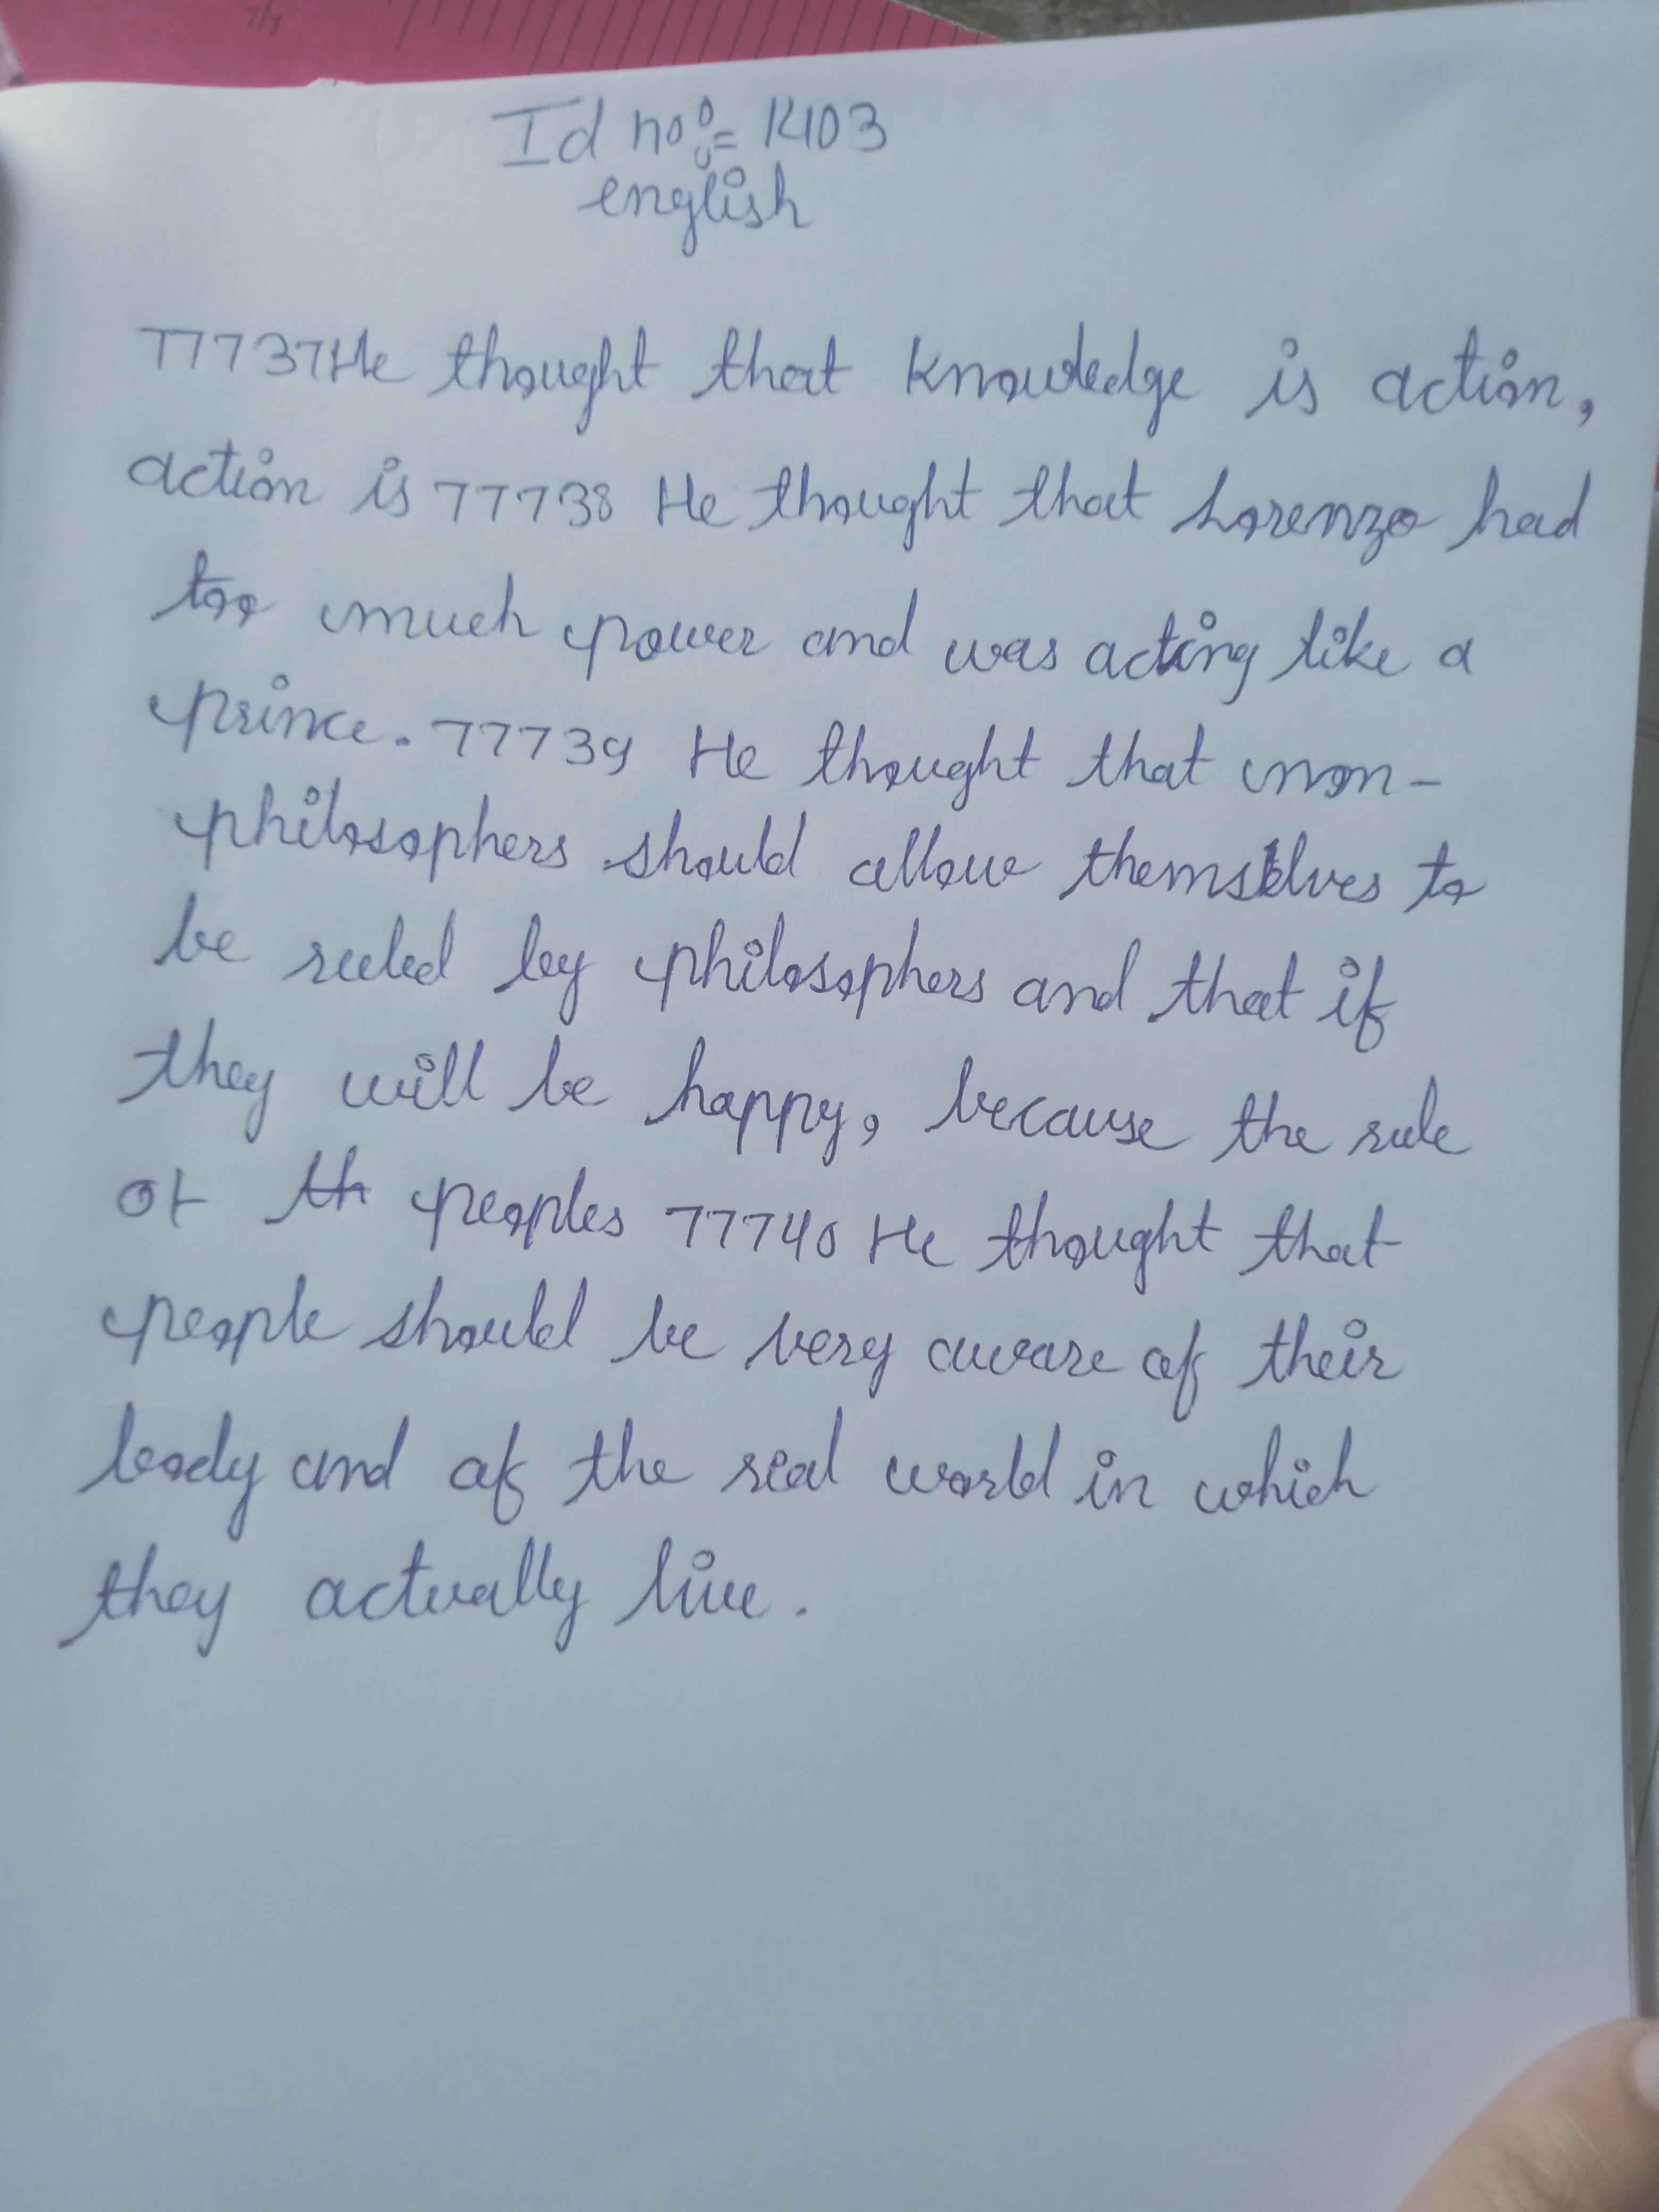 Id no:= 1403
english
77737He thought that knowledge is action,
action is 77738 He thought that Lorenzo had
too much power and was acting like a
prince. 77739 He thought that non-
philosophers should allow themselves to
be ruled by philosophers and that if
they will be happy, because the rule
of th peoples 77740 He thought that
people should be very aware of their
body and of the real world in which
they actually live.